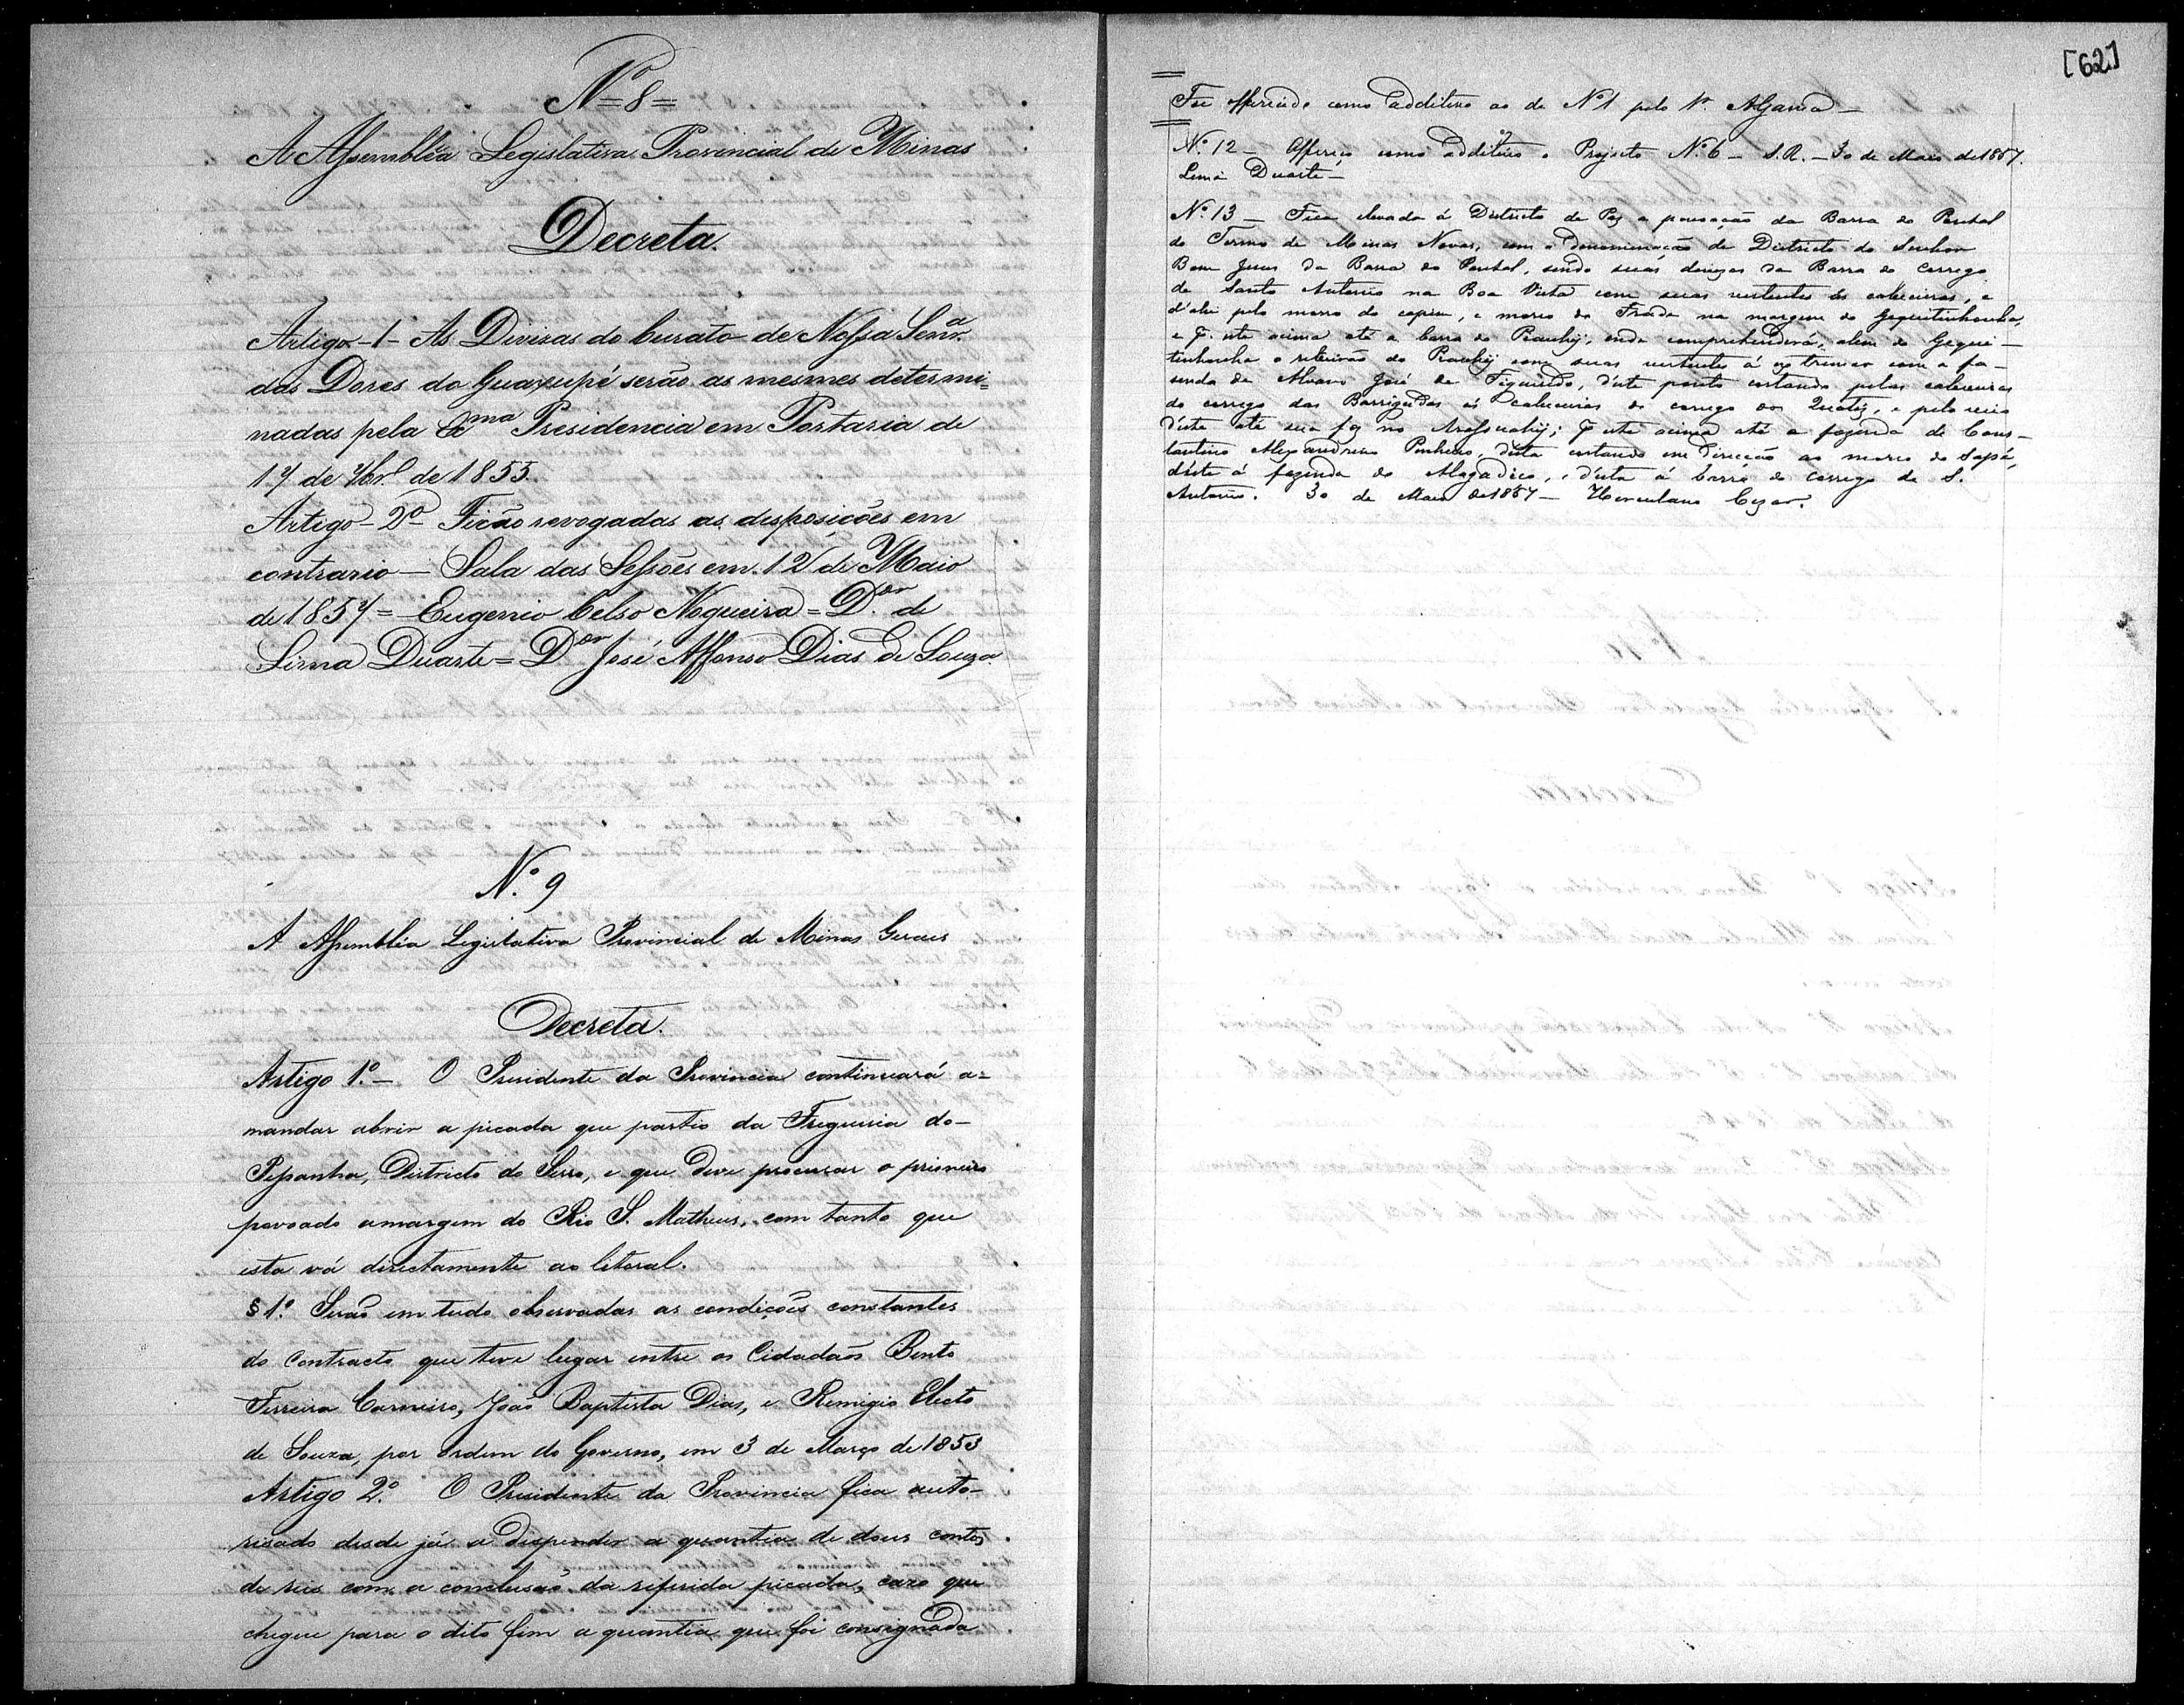 Nº 8=
A Assemblêa Legislativa Provincial de Minas
Decreta.
Artigo-1- As Divizas do Curato de Nossa Senrª
das Dores do Guaxupé serão as mesmes determi=
nadas pela Exma Presidencia em Portaria de
17 de 7br. de 1855.
Artigo-2º- Ficão revogadas as disposições em
contrario — Sala das Sessões em 12 de Maio
de 1857= Eugenio Celso Nogueira= Dor de
Lima Duarte= Dor José Affonso Dias de Souza.
N.º 9
A Assembléa Legislativa Provincial de Minas Geraes
Decreta.
Artigo 1.º — O Presidente da Provincia continuará a-
mandar abrir a picada que partio da Freguesia do-
Pessanha, Districto do Serro, e que deve procurar o primeiro
povoado amargem do Rio S. Matheus, com tanto que
esta vá directamente ao litoral.
§ 1.º Serão em tudo observadas as condições constantes
do Contracto que teve lugar entre os Cidadãos Bento
Ferreira Carneiro, João Baptista Dias, e Remigio Electo
de Souza, por ordem do Governo, em 3 de Março de 1853
Artigo 2.º O Presidente da Provincia fica auto-
risado desde já a dispender a quantia de dous contos
de reis com a conclusão da referida picada, caso que
chegue para o dito fim a quantia que foi consignada
[62]
Foi offerecido como additivo ao de Nº 1 pelo Sr. A Garcia —
N.º 12 — Offereço como additivo o Projecto N.º 6 — S.R. — 30 de Maio de 1857.
Lima Duarte —
N.º 13 — Fica elevada á Districto de Paz a povoação da Barra do Pontal
do Termo de Minas Novas, com a denominação de Districto do Senhor
Bom Jesus da Barra do Pontal, sendo suas divizas da Barra do Corrego
de Santo Antonio na Boa Vista com suas vertentes ás cabeceiras, e
d'ahi pelo morro do capim, e morro do Frade na margem do Jequitinhonha,
e p. este acima até a barra do Piauhy, onde comprehenderá, alem do Gequi-
tinhonha o ribeirão do Piauhy com suas vertentes á extremar com a fa-
senda de Alvaro José de Figueiredo, d'este ponto cortando pelas cabeceiras
do corrego das Barrigudas ás cabeceiras do corrego dos Quatis, e pelo veio
d'este até sua foz no Arassuahy; p. este acima até a fazenda de Cons-
tantino Alexandrino Pinheiro, d'esta cortando em direcção ao morro do Sapé,
d'este á fazenda do Alagadiço, e d'esta á barra do Corrego de S.
Antonio. 30 de Maio de 1857 — Herculano Cezar.